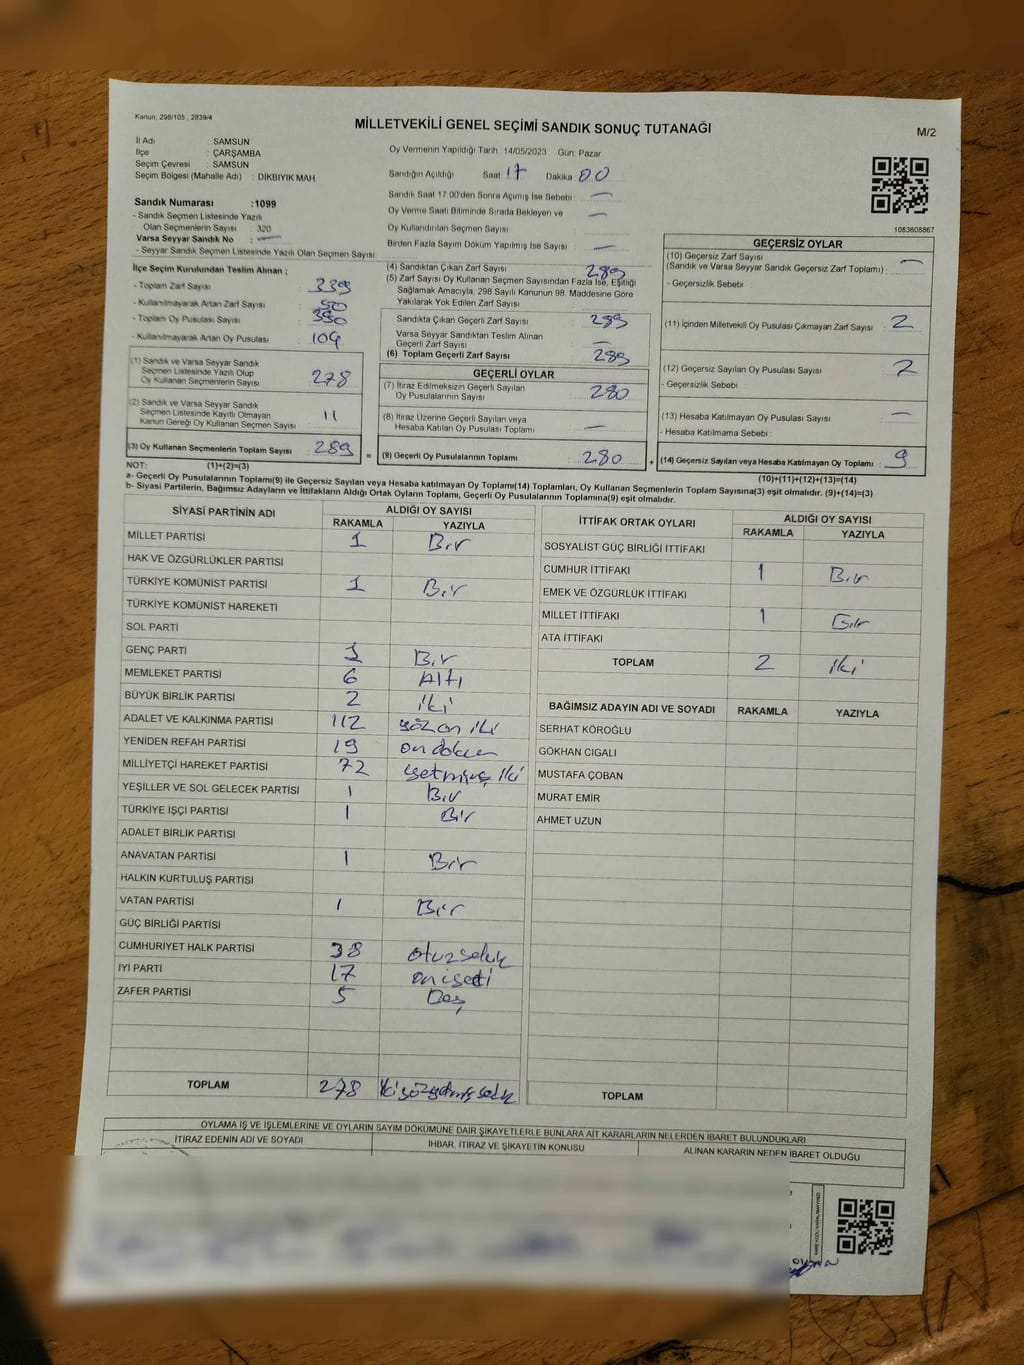 Kanun: 298/105 , 2839/4
MİLLETVEKİLİ GENEL SEÇİMİ SANDIK SONUÇ TUTANAĞI
M/2
İl Adı : SAMSUN
İlçe : ÇARŞAMBA
Seçim Çevresi : SAMSUN
Seçim Bölgesi (Mahalle Adı) : DİKBIYIK MAH.
Oy Vermenin Yapıldığı Tarih :14/05/2023 Gün: Pazar
Sandığın Açıldığı Saat 17 Dakika 00
Sandık Saat 17:00'den Sonra Açılmış İse Sebebi: —
Oy Verme Saati Bitiminde Sırada Bekleyen ve —
Oy Kullandırılan Seçmen Sayısı
Birden Fazla Sayım Döküm Yapılmış İse Sayısı : —
1083608867
Sandık Numarası :1099
- Sandık Seçmen Listesinde Yazılı
Olan Seçmenlerin Sayısı : 320
Varsa Seyyar Sandık No : —
- Seyyar Sandık Seçmen Listesinde Yazılı Olan Seçmen Sayısı
İlçe Seçim Kurulundan Teslim Alınan ;
- Toplam Zarf Sayısı : 339
- Kullanılmayarak Artan Zarf Sayısı : 50
- Toplam Oy Pusulası Sayısı :
- Kullanılmayarak Artan Oy Pusulası : 109
(1) Sandık ve Varsa Seyyar Sandık
Seçmen Listesinde Yazılı Olup
Oy Kullanan Seçmenlerin Sayısı : 278
(2) Sandık ve Varsa Seyyar Sandık
Seçmen Listesinde Kayıtlı Olmayan
Kanun Gereği Oy Kullanan Seçmen Sayısı : 11
(3) Oy Kullanan Seçmenlerin Toplam Sayısı : 289
(4) Sandıktan Çıkan Zarf Sayısı : 289
(5) Zarf Sayısı Oy Kullanan Seçmen Sayısından Fazla İse, Eşitliği
Sağlamak Amacıyla, 298 Sayılı Kanunun 98. Maddesine Göre
Yakılarak Yok Edilen Zarf Sayısı :
Sandıkta Çıkan Geçerli Zarf Sayısı : 289
Varsa Seyyar Sandıktan Teslim Alınan
Geçerli Zarf Sayısı : —
(6) Toplam Geçerli Zarf Sayısı : 289
GEÇERLİ OYLAR
(7) İtiraz Edilmeksizin Geçerli Sayılan
Oy Pusulalarının Sayısı : 280
(8) İtiraz Üzerine Geçerli Sayılan veya
Hesaba Katılan Oy Pusulası Toplamı : —
= (9) Geçerli Oy Pusulalarının Toplamı : 280
GEÇERSİZ OYLAR
(10) Geçersiz Zarf Sayısı
(Sandık ve Varsa Seyyar Sandık Geçersiz Zarf Toplamı) : —
- Geçersizlik Sebebi :
(11) İçinden Milletvekili Oy Pusulası Çıkmayan Zarf Sayısı : 2
(12) Geçersiz Sayılan Oy Pusulası Sayısı : 7
- Geçersizlik Sebebi :
(13) Hesaba Katılmayan Oy Pusulası Sayısı : —
- Hesaba Katılmama Sebebi :
+ (14) Geçersiz Sayılan veya Hesaba Katılmayan Oy Toplamı : 9
NOT: (1)+(2)=(3)
(10)+(11)+(12)+(13)=(14)
a- Geçerli Oy Pusulalarının Toplamı(9) ile Geçersiz Sayılan veya Hesaba katılmayan Oy Toplamı(14) Toplamları, Oy Kullanan Seçmenlerin Toplam Sayısına(3) eşit olmalıdır. (9)+(14)=(3)
b- Siyasi Partilerin, Bağımsız Adayların ve İttifakların Aldığı Ortak Oyların Toplamı, Geçerli Oy Pusulalarının Toplamına(9) eşit olmalıdır.
SİYASİ PARTİNİN ADI ALDIĞI OY SAYISI
RAKAMLA YAZIYLA
MİLLET PARTİSİ 1 Bir
HAK VE ÖZGÜRLÜKLER PARTİSİ
TÜRKİYE KOMÜNİST PARTİSİ 1 Bir
TÜRKİYE KOMÜNİST HAREKETİ
SOL PARTİ
GENÇ PARTİ 1 Bir
MEMLEKET PARTİSİ 6 Altı
BÜYÜK BİRLİK PARTİSİ 2 iki
ADALET VE KALKINMA PARTİSİ 112 yüz on iki
YENİDEN REFAH PARTİSİ 19 on dokuz
MİLLİYETÇİ HAREKET PARTİSİ 72 yetmiş iki
YEŞİLLER VE SOL GELECEK PARTİSİ 1 Bir
TÜRKİYE İŞÇİ PARTİSİ 1 Bir
ADALET BİRLİK PARTİSİ
ANAVATAN PARTİSİ 1 Bir
HALKIN KURTULUŞ PARTİSİ
VATAN PARTİSİ 1 Bir
GÜÇ BİRLİĞİ PARTİSİ
CUMHURİYET HALK PARTİSİ 38 otuz sekiz
İYİ PARTİ 17 on yedi
ZAFER PARTİSİ 5 Beş
TOPLAM 278 iki yüz yetmiş sekiz
İTTİFAK ORTAK OYLARI ALDIĞI OY SAYISI
RAKAMLA YAZIYLA
SOSYALİST GÜÇ BİRLİĞİ İTTİFAKI
CUMHUR İTTİFAKI 1 Bir
EMEK VE ÖZGÜRLÜK İTTİFAKI
MİLLET İTTİFAKI 1 Bir
ATA İTTİFAKI
TOPLAM 2 iki
BAĞIMSIZ ADAYIN ADI VE SOYADI RAKAMLA YAZIYLA
SERHAT KÖROĞLU
GÖKHAN CIGALI
MUSTAFA ÇOBAN
MURAT EMİR
AHMET UZUN
TOPLAM
OYLAMA İŞ VE İŞLEMLERİNE VE OYLARIN SAYIM DÖKÜMÜNE DAİR ŞİKAYETLERLE BUNLARA AİT KARARLARIN NELERDEN İBARET BULUNDUKLARI
İTİRAZ EDENİN ADI VE SOYADI İHBAR, İTİRAZ VE ŞİKAYETİN KONUSU ALINAN KARARIN NEDEN İBARET OLDUĞU